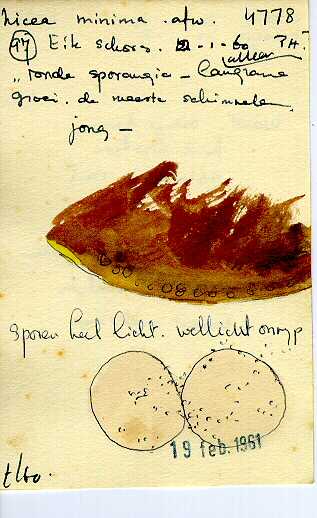 Licea minima. afw. 4778
97 Eik schors. 12-1-60 P.H.
alleen
"ronde sporangia - langzame
groei. de meeste schimmelen.
jong -
Sporen heel licht. wellicht onrijp
19 feb. 1961